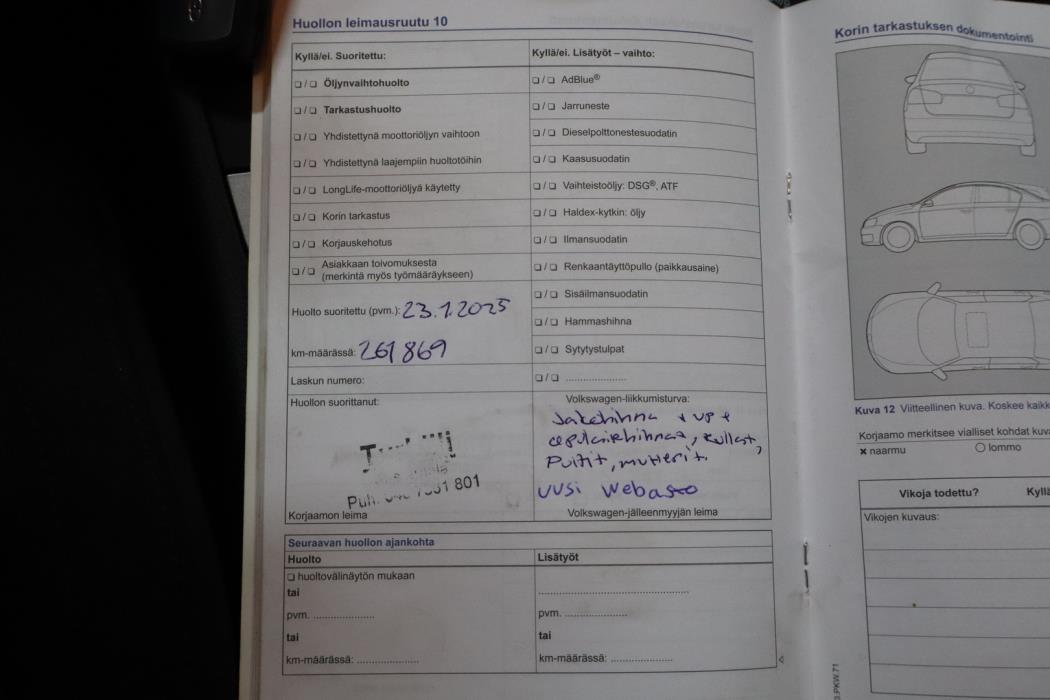 Huollon leimausruutu 10
Kyllä/ei. Suoritettu:
❑ / ❑ Öljynvaihtohuolto
❑ / ❑ Tarkastushuolto
❑ / ❑ Yhdistettynä moottoriöljyn vaihtoon
❑ / ❑ Yhdistettynä laajempiin huoltotöihin
❑ / ❑ LongLife-moottoriöljyä käytetty
❑ / ❑ Korin tarkastus
❑ / ❑ Korjauskehotus
❑ / ❑ Asiakkaan toivomuksesta
(merkintä myös työmääräykseen)
Huolto suoritettu (pvm.): 23.1.2025
km-määrässä: 261 869
Laskun numero:
Huollon suorittanut:
801
Korjaamon leima
Kyllä/ei. Lisätyöt – vaihto:
❑ / ❑ AdBlue®
❑ / ❑ Jarruneste
❑ / ❑ Dieselpolttonestesuodatin
❑ / ❑ Kaasusuodatin
❑ / ❑ Vaihteistoöljy: DSG®, ATF
❑ / ❑ Haldex-kytkin: öljy
❑ / ❑ Ilmansuodatin
❑ / ❑ Renkaantäyttöpullo (paikkausaine)
❑ / ❑ Sisäilmansuodatin
❑ / ❑ Hammashihna
❑ / ❑ Sytytystulpat
❑ / ❑ .....................
Volkswagen-liikkumisturva:
Jakohihna + VP +
Pultit, mutterit.
UUSI Webasto
Volkswagen-jälleenmyyjän leima
Seuraavan huollon ajankohta
Huolto
❑ huoltovälinäytön mukaan
tai
pvm. .....................
tai
km-määrässä: .....................
Lisätyöt
.....................
pvm. .....................
tai
km-määrässä: .....................
Korin tarkastuksen dokumentointi
Kuva 12 Viitteellinen kuva. Koskee kaikk
Korjaamo merkitsee vialliset kohdat kuva
× naarmu ○ lommo
Vikoja todettu? Kyllä
Vikojen kuvaus: